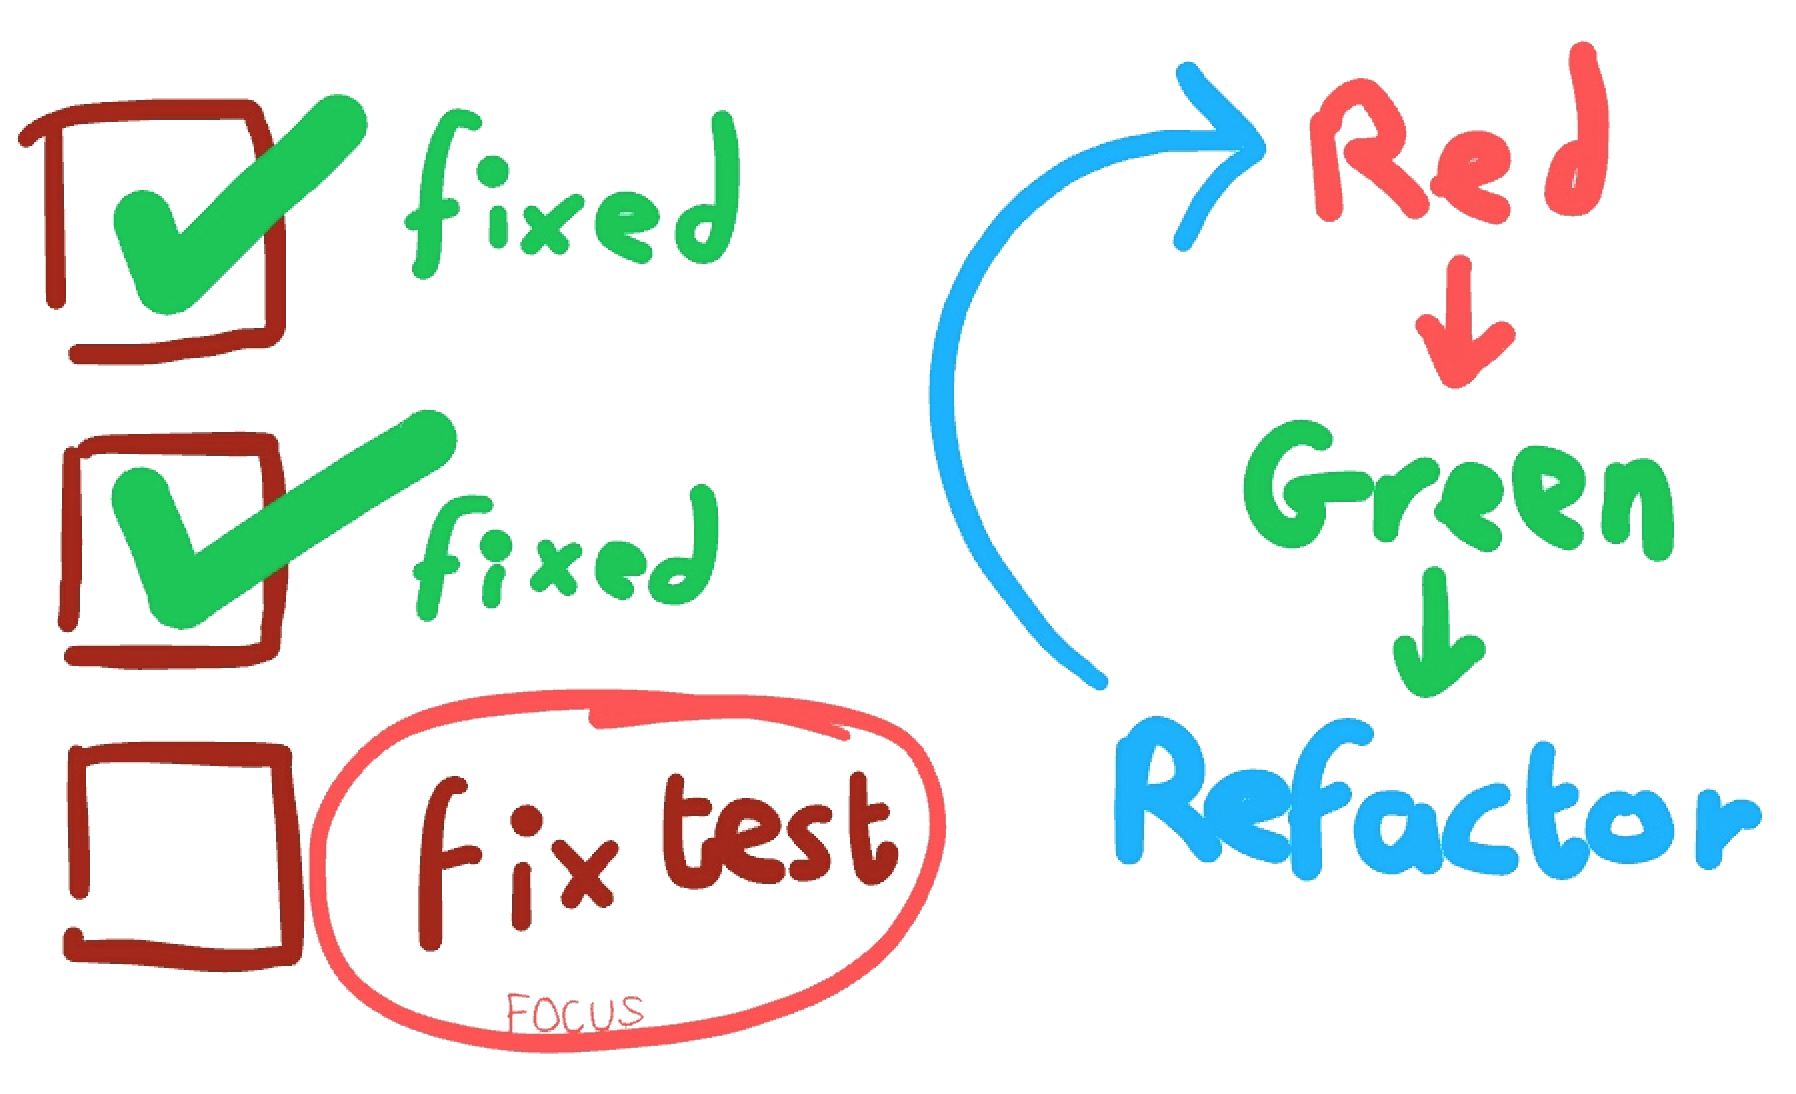 fixed
fixed
fix test
FOCUS
Red
Green
Refactor